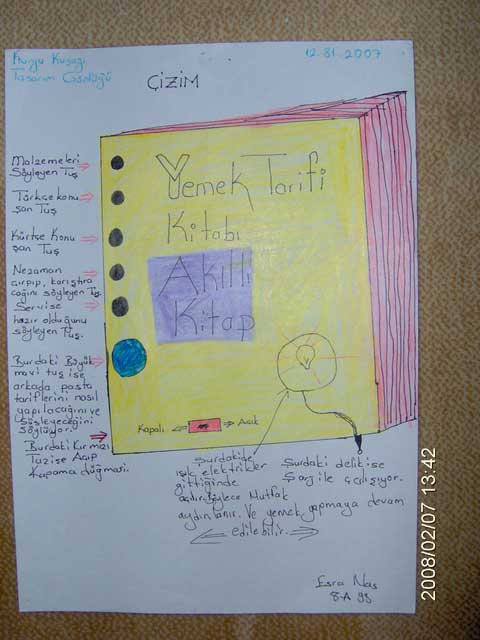 Kurgu Kuşağı
Tasarım Günlüğü
12.31.2007
ÇİZİM
Malzemeleri
Söyleyen Tuş
Türkçe konu
şan Tuş
Kürtçe Konu
şan Tuş
Nezaman
çırpıp, karıştıra
cağını söyleyen Tuş.
Servise
hazır olduğunu
söyleyen Tuş.
Burdaki Büyük
mavi tuş ise
arkada pasta
tariflerini nasıl
yapılacağını ve
süsleyeceğini
söylüyor.
Burdaki Kırmızı
Tuzise Açıp
Kapama düğmesi.
Yemek Tarifi
Kitabı
Akıllı
Kitap
Kapalı
Açık
Şurdakide
ışık elektrikler
gittiğinde
açılır. Böylece Mutfak
aydınlanır. Ve yemek yapmaya devam
edilebilir.
Şurdaki delikise
Şarj ile çalışıyor.
Esra Nas
8-A 99
2008/02/07 13:42